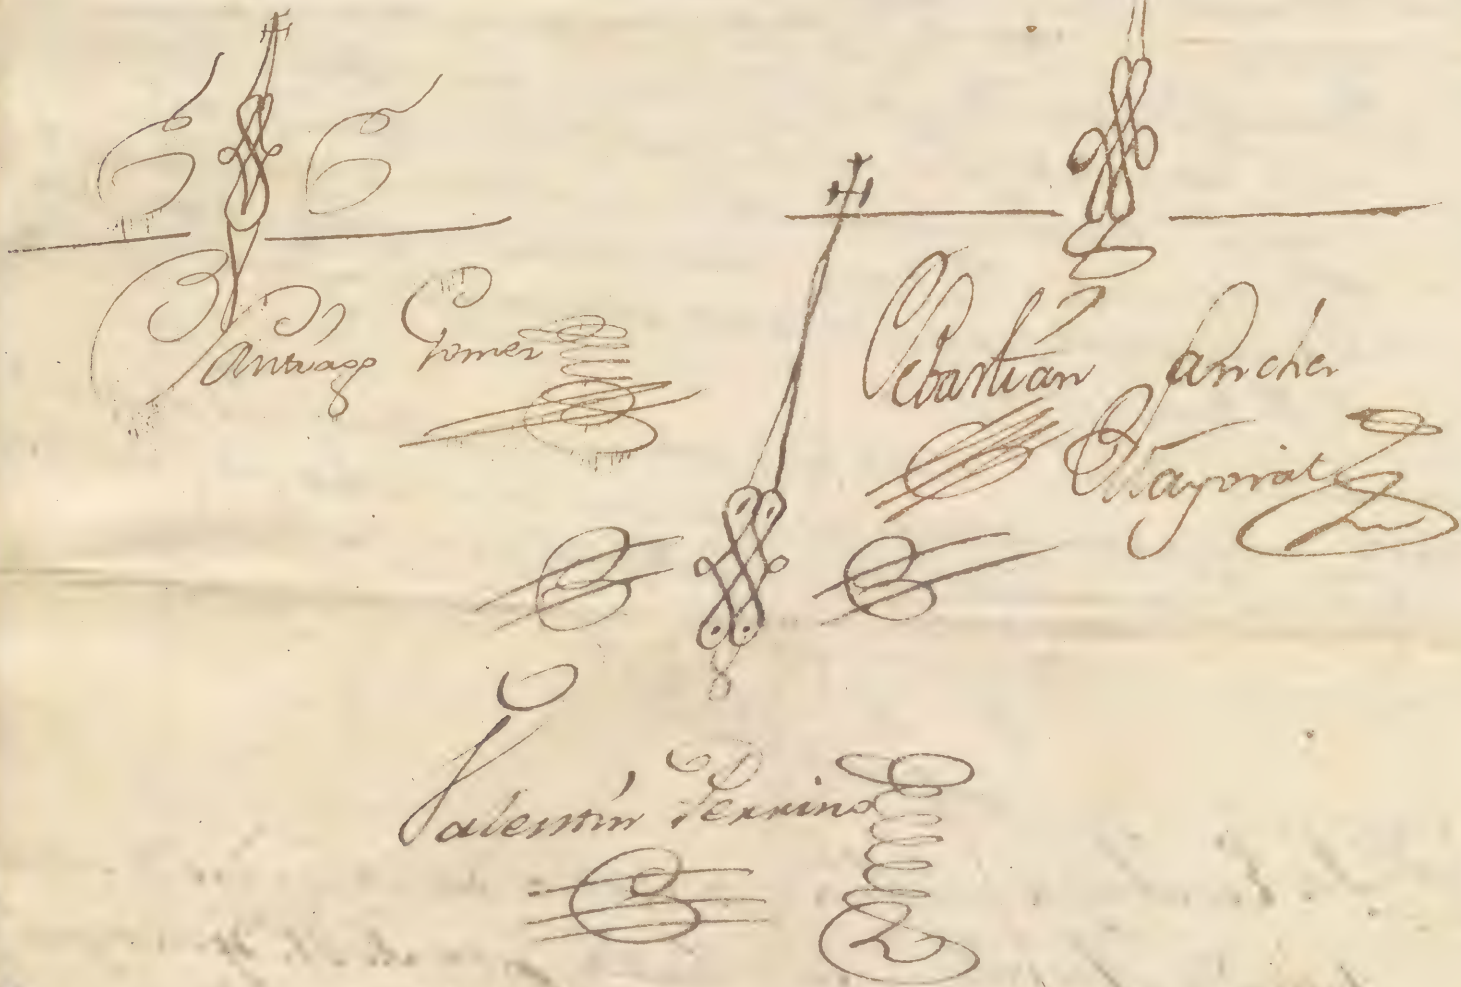 Santiago Gomez
Sebastián Sanchez
Mayoral
Valentín Perrino